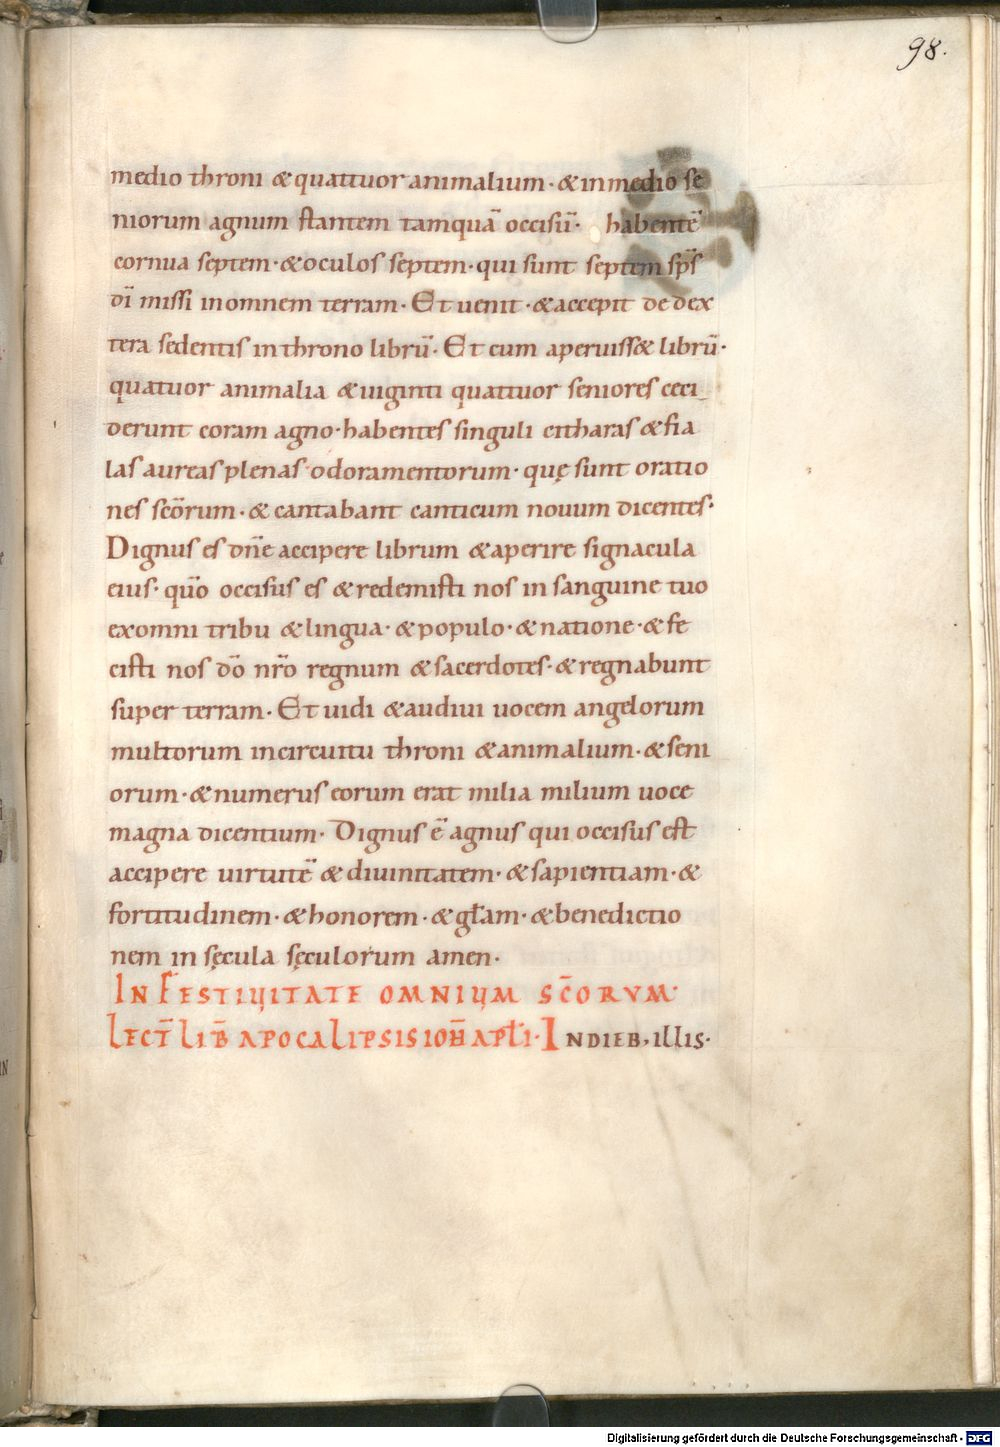 98.
medio throni & quattuor animalium· & inmedio se
niorum agnum stantem tamquā occisū· habentē
cornua septem· & oculos septem· qui sunt septem sp̄s
dī missi inomnem terram· Et uenit· & accepit de dex
tera sedentis in throno librū· Et cum aperuiss& librū·
quatuor animalia & uiginti quattuor seniores ceci
derunt coram agno· habentes singuli citharas & fia
las aureas plenas odoramentorum· quę sunt oratio
nes scōrum· & cantabant canticum nouum dicentes·
Dignus es dn̄e accipere librum & aperire signacula
eius· qūo occisus es & redemisti nos in sanguine tuo
exomni tribu & lingua· & populo· & natione· & fe
cisti nos dō nr̄o regnum & sacerdotes· & regnabunt
super terram· Et uidi & audiui uocem angelorum
multorum incircuitu throni & animalium· & seni
orum· & numerus eorum erat milia milium uoce
magna dicentium· Dignus ē agnus qui occisus est
accipere uirtutē & diuinitatem· & sapientiam· &
fortitudinem· & honorem· & gl̄am· & benedictio
nem in sęcula sęculorum amen·
IN FESTIUITATE OMNIUM SC̄ORVM·
LECT̄ LIB̄ APOCALIPSIS IOH̄ APL̄I· INDIEB, ILLIS·
Digitalisierung gefördert durch die Deutsche Forschungsgemeinschaft - DFG